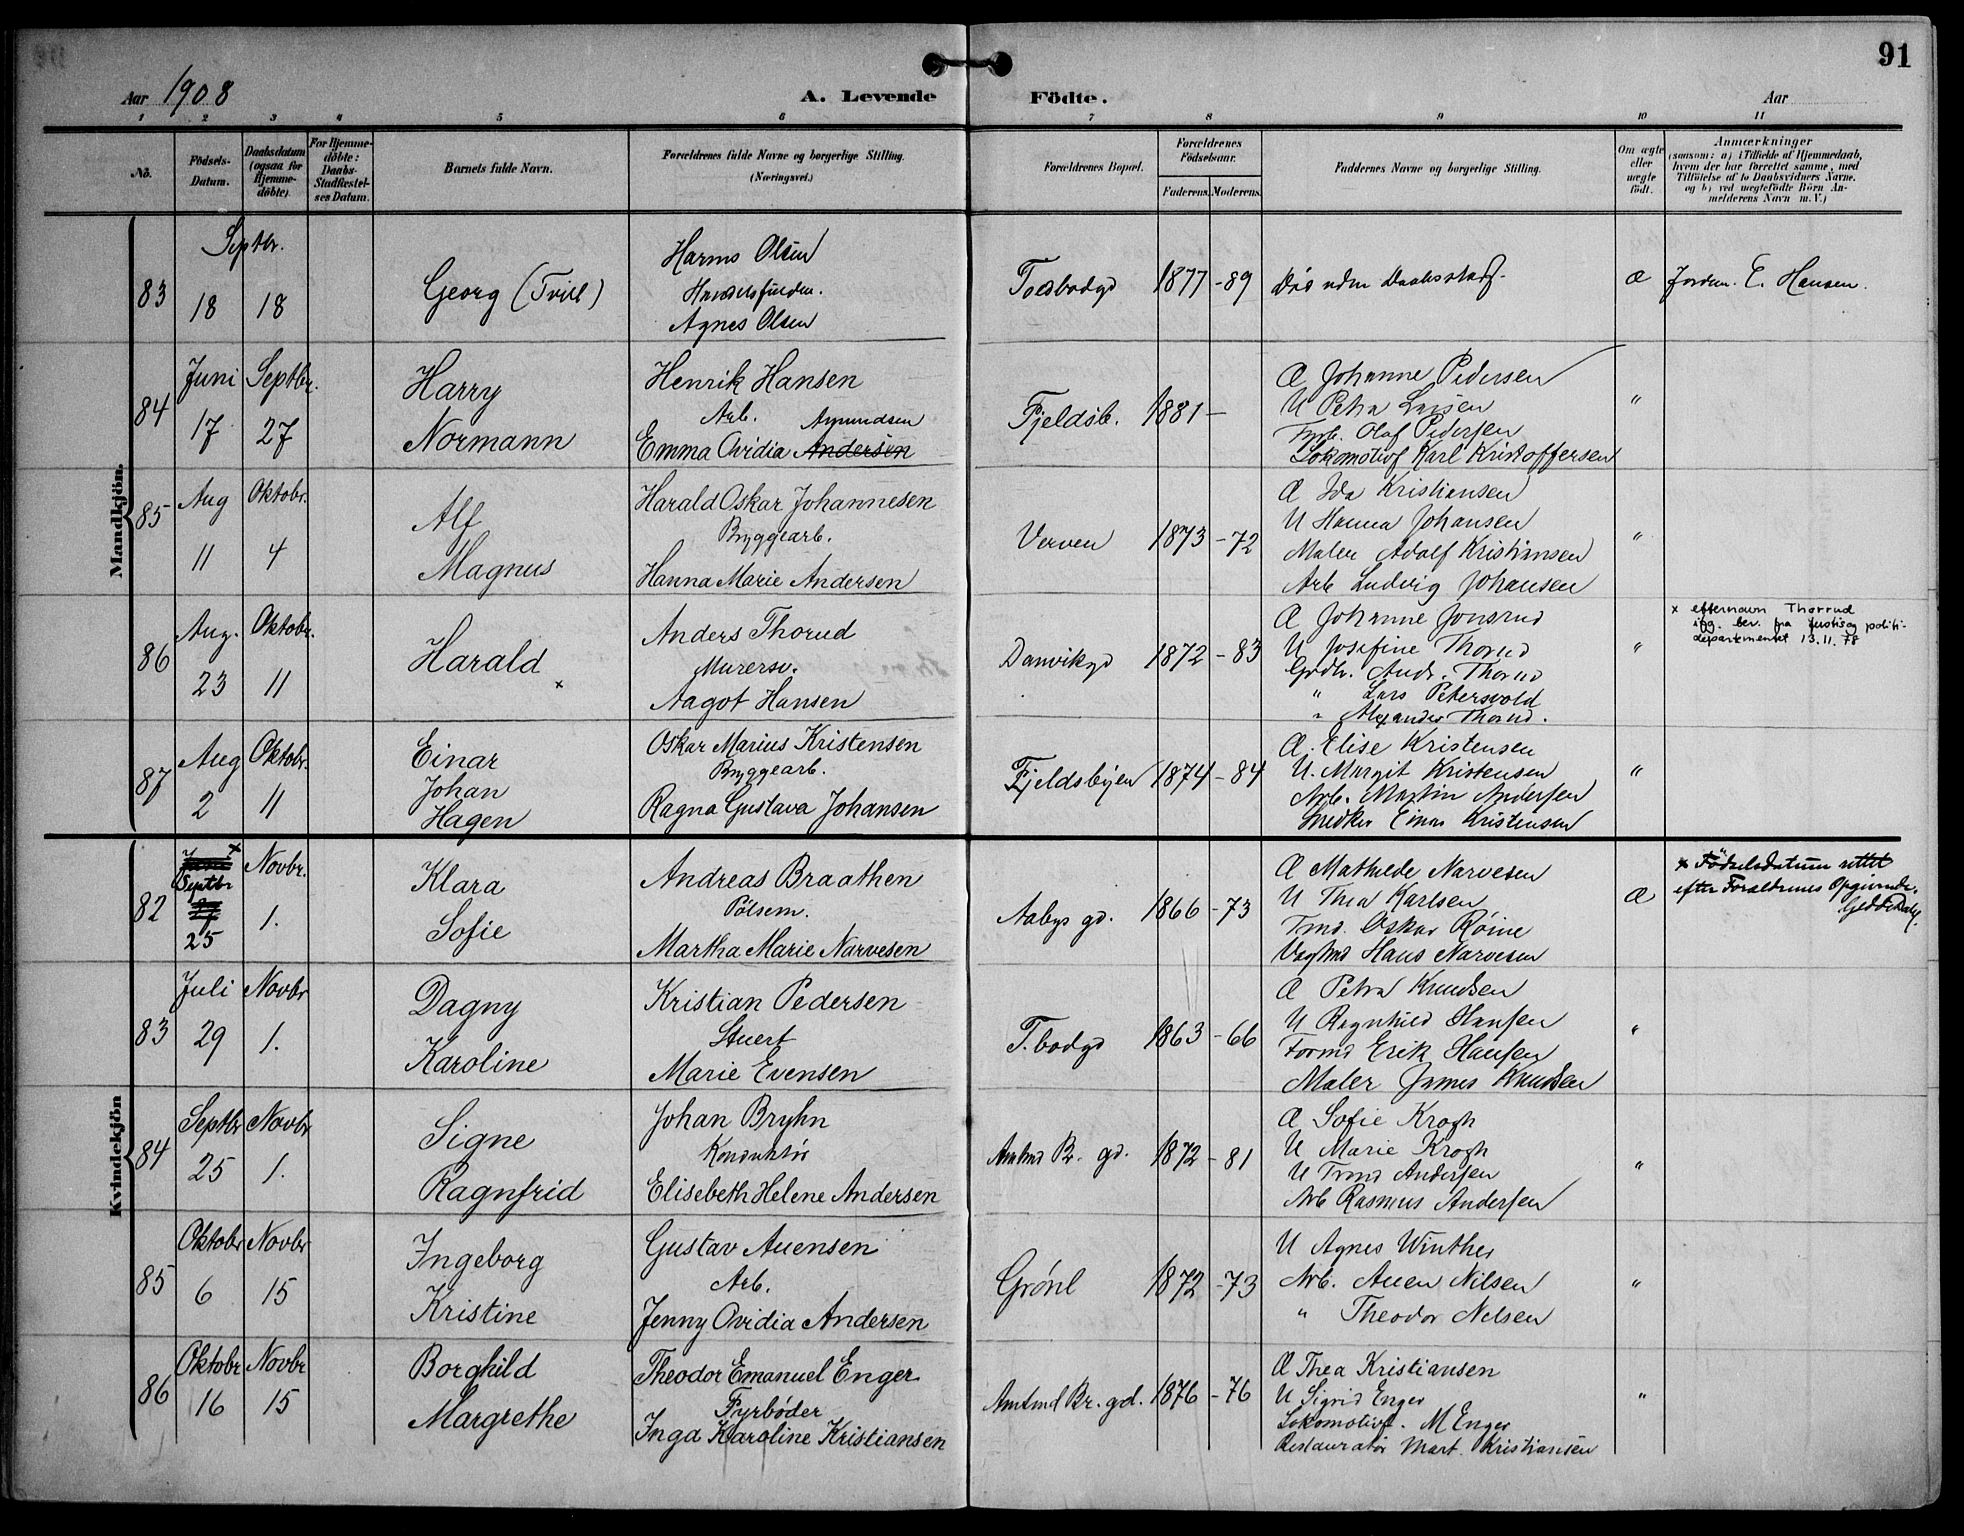 91
Aar 1908
A. Levende Födte.
Aar
1 2 3 4 5 6 7 8 9 10 11
No.
Födsels-Datum.
Daabsdatum (ogsaa for Hjemme-döbte).
For Hjemme-döbte: Daabs-Stadfæstel-ses Datum.
Barnets fulde Navn.
Forældrenes fulde Navne og borgerlige Stilling. (Næringsvei.)
Forældrenes Bopæl.
Forældrenes Födselsaar.
Faderens. Moderens.
Faddernes Navne og borgerlige Stilling.
Om ægte eller uægte födt.
Anmærkninger
(saasom: a) i Tilfælde af Hjemmedaab, hvem der har forrettet samme, med Tilföielse af to Daabsvidners Navne. og b) ved uægtefödte Börn An-melderens Navn m. V.)
Mandkjön.
83
Septbr.
18 18
Georg (Tvill)
Harms Olsen
Agnes Olsen
Toldbodgd 1877 - 89
Död uden Daabsstadf.
Æ
Jordm. E. Hansen.
84
Juni Septbr.
17 27
Harry
Normann
Henrik Hansen
Arb. Amundsen
Emma Ovidia Andersen
Fjeldsb. 1881 -
Æ Johanne Pedersen
U Petra Larsen
Fyrb. Olaf Pedersen
Lokomotivf Karl Kristoffersen
"
85
Aug Oktobr.
11 4
Alf
Magnus
Harald Oskar Johannesen
Byggearb.
Hanna Marie Andersen
Verven 1873 - 72
Æ Ida Kristiansen
U Hanna Johansen
Maler Adolf Kristiansen
Arb Ludvig Johansen
"
86
Aug. Oktobr.
23 11
Harald x
Anders Thorud
Murersv.
Aagot Hansen
Danvikgd 1872 - 83
Æ Johanne Jonsrud
U Josefine Thorud
Grdbr. Andr. Thorud
" Lars Petersvold
" Alexander Thorud.
"
x efternavn Thorrud
ifg. bev. fra Justis og politi-
departementet 13.11.78
87
Aug Oktobr.
2 11
Einar
Johan
Hagen
Oskar Marius Kristensen
Byggearb.
Ragna Gustava Johansen
Fjeldsbyen 1874 - 84
Æ. Elise Kristensen
U. Margit Kristensen
Arb. Martin Andersen
Snedker Einar Kristensen
"
Kvindekjön
82
x Novbr.
Septbr
25 1.
Klara
Sofie
Andreas Braathen
Pölsem.
Martha Marie Narvesen
Aabys gd. 1866 - 73
Æ Mathilde Narvesen
U Thea Karlsen
Trmd. Oskar Röine
Vagtmd Hans Narvesen
Æ
x Födselsdatum rettet
efter Forældrenes Opgivende.
83
Juli Novbr
29 1.
Dagny
Karoline
Kristian Pedersen
Stuert
Marie Evensen
T.bodgd 1863 - 66
Æ Petra Knudsen
U Ragnhild Hansen
Formd Erik Hansen
Maler James Knudsen
"
84
Septbr Novbr
25 1.
Signe
Ragnfrid
Johan Bryhn
Konduktör
Elisebeth Helene Andersen
Amtmd Br. gd. 1872 - 81
Æ Sofie Krogh
U Marie Krogh
U Trmd Andersen
Arb Rasmus Andersen
"
85
Oktobr Novbr
6 15
Ingeborg
Kristine
Gustav Auensen
Arb.
Jenny Ovidia Andersen
Grönl 1872 - 73
U Agnes Winther
Arb. Auen Nilsen
" Theodor Nelsen
"
86
Oktobr Novbr
16 15
Borghild
Margrethe
Theodor Emanuel Enger
Fyrböder
Inga Karoline Kristiansen
Amtmd Br. gd. 1876 - 76
Æ Thea Kristiansen
U Sigrid Enger
Lokomotivf. M Enger
Restauratör Mart. Kristiansen
"